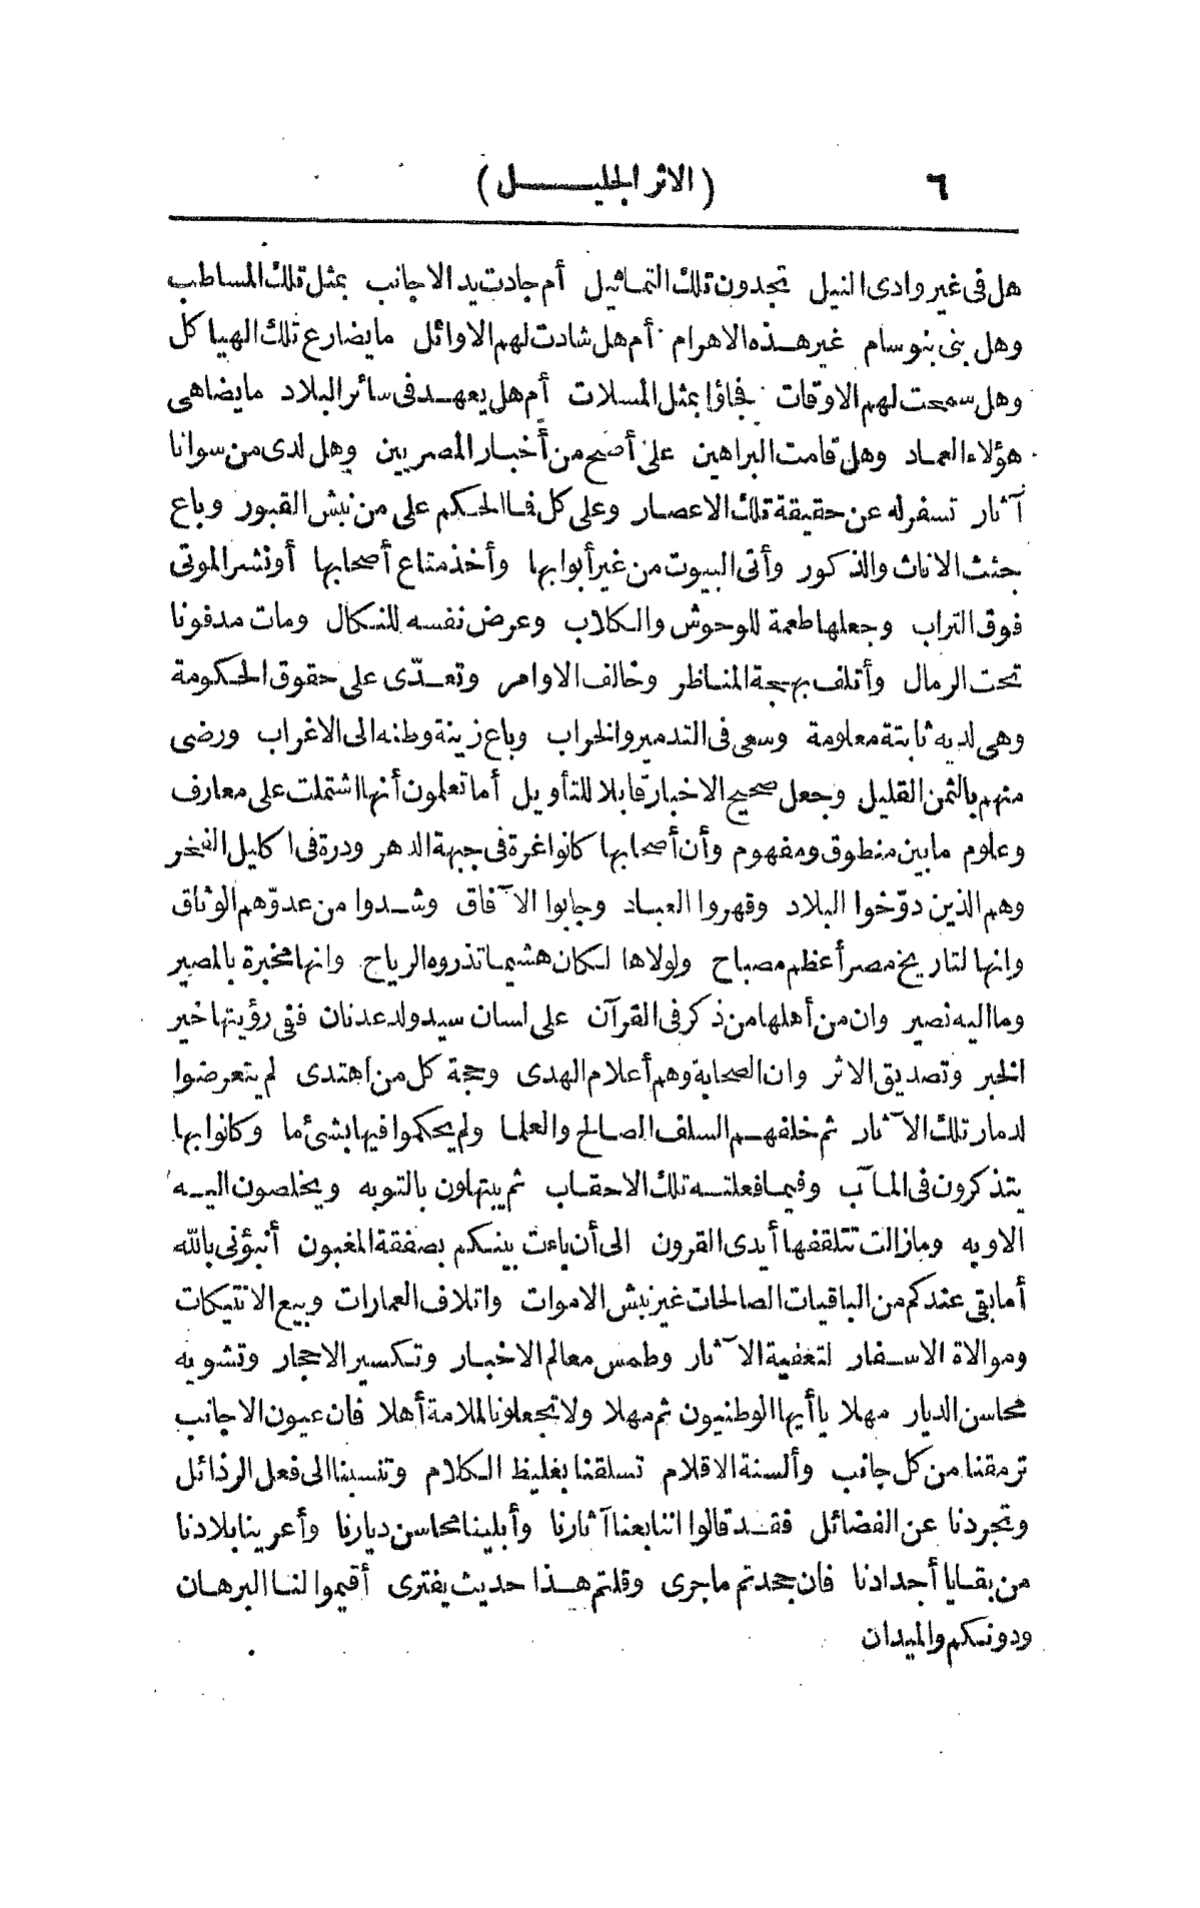 ٦ (الاثر الجليل)
هل فى غير وادى النيل تجدون تلك التماثيل أم جادت يد الاجانب بمثل تلك المساطب
وهل بنى بنو سام غير هذه الاهرام أم هل شادت لهم الاوائل ما يضارع تلك الهياكل
وهل سمحت لهم الاوقات فجاؤا بمثل المسلات أم هل يعهد فى سائر البلاد ما يضاهى
هؤلاء العماد وهل قامت البراهين على أصح من أخبار المصريين وهل لدى من سوانا
آثار تسفر له عن حقيقة تلك الاعصار وعلى كل فما الحكم على من نبش القبور وباع
جثث الاناث والذكور وأتى البيوت من غير أبوابها وأخذ متاع أصحابها أو نشر الموتى
فوق التراب وجعلها طعمة للوحوش والكلاب وعرض نفسه للنكال ومات مدفونا
تحت الرمال وأتلف بهجة المناظر وخالف الاوامر وتعدّى على حقوق الحكومة
وهى لديه ثابتة معلومة وسعى فى التدمير والخراب وباع زينة وطنه الى الاغراب ورضى
منهم بالثمن القليل وجعل صحيح الاخبار قابلا للتأويل أما تعلمون أنها اشتملت على معارف
وعلوم ما بين منطوق ومفهوم وأن أصحابها كانوا غرة فى جبهة الدهر ودرة فى اكليل الفخر
وهم الذين دوّخوا البلاد وقهروا العباد وجابوا الآفاق وشدوا من عدوّهم الوثاق
وانها لتاريخ مصر أعظم مصباح ولولاها لكان هشيما تذروه الرياح وانها مخبرة بالمصير
وما اليه نصير وان من أهلها من ذكر فى القرآن على لسان سيد ولد عدنان ففى رؤيتها خير
الخبر وتصديق الاثر وان الصحابة وهم أعلام الهدى وحجة كل من اهتدى لم يتعرضوا
لدمار تلك الآثار ثم خلفهم السلف الصالح والعلما ولم يحكموا فيها بشئ ما وكانوا بها
يتذكرون فى المآب وفيما فعلته تلك الاحقاب ثم يبتهلون بالتوبه ويخلصون اليه
الاوبه ومازالت تتلقفها أيدى القرون الى أن باءت بينكم بصفقة المغبون أنبؤنى بالله
أما بقى عندكم من الباقيات الصالحات غير نبش الاموات واتلاف العمارات وبيع الانتيكات
وموالاة الاسفار لتعفية الآثار وطمس معالم الاخبار وتكسير الاحجار وتشويه
محاسن الديار مهلا يا أيها الوطنيون ثم مهلا ولا تجعلونا للملامة أهلا فان عيون الاجانب
ترمقنا من كل جانب وألسنة الاقلام تسلقنا بغليظ الكلام وتنسبنا الى فعل الرذائل
وتجردنا عن الفضائل فقد قالوا اننا بعنا آثارنا وأبلينا محاسن ديارنا وأعرينا بلادنا
من بقايا أجدادنا فان جحدتم ما جرى وقلتم هذا حديث يفترى أقيموا لنا البرهان
ودونكم والميدان